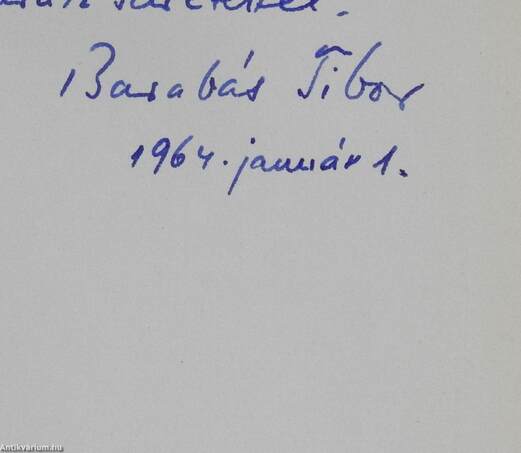 szeretettel.
Barabás Tibor
1964. január 1.
Antikvarium.hu